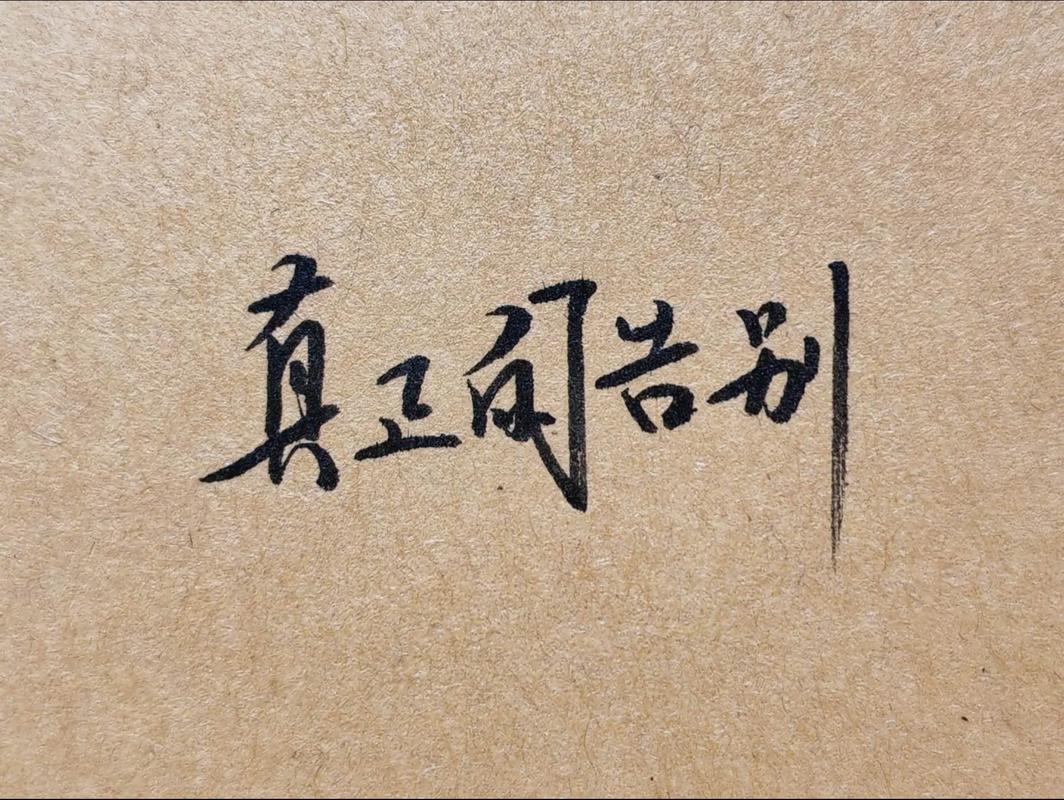 真正的告别